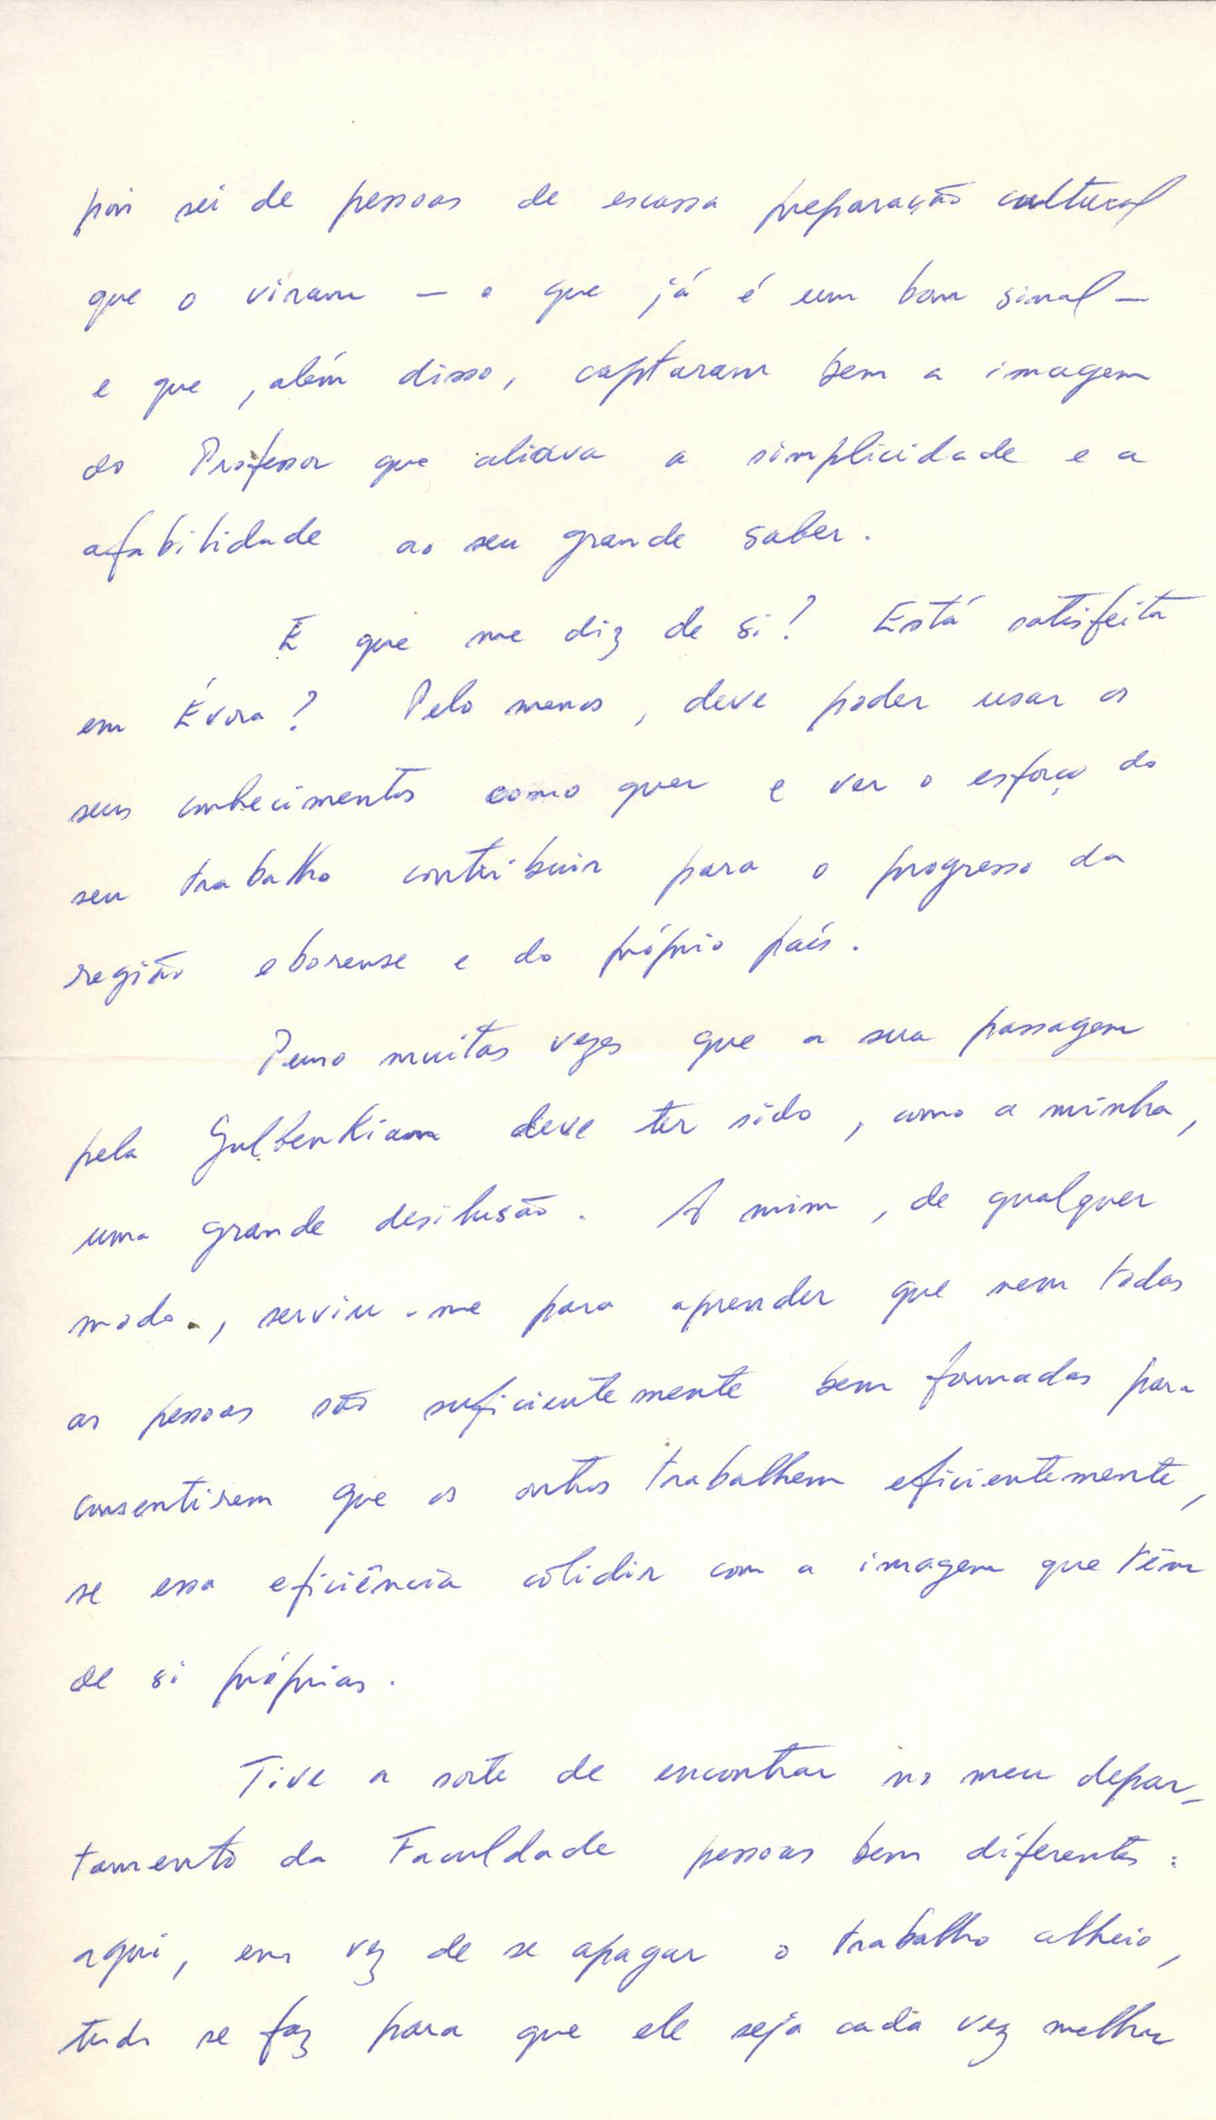 pois sei de pessoas de escassa preparação cultural
que o viram – o que já é um bom sinal –
e que, além disso, captaram bem a imagem
do Professor que aliava a simplicidade e a
afabilidade ao seu grande saber.
E que me diz de si? Está satisfeita
em Évora? Pelo menos, deve poder usar os
seus conhecimentos como quer e ver o esforço do
seu trabalho contribuir para o progresso da
região eborense e do próprio país.
Penso muitas vezes que a sua passagem
pela Gulbenkian deve ter sido, como a minha,
uma grande desilusão. A mim, de qualquer
modo, serviu-me para aprender que nem todas
as pessoas são suficientemente bem formadas para
consentirem que os outros trabalhem eficientemente,
se essa eficiência colidir com a imagem que têm
de si próprias.
Tive a sorte de encontrar no meu depar-
tamento da Faculdade pessoas bem diferentes:
aqui, em vez de se apagar o trabalho alheio,
tudo se faz para que ele seja cada vez melhor